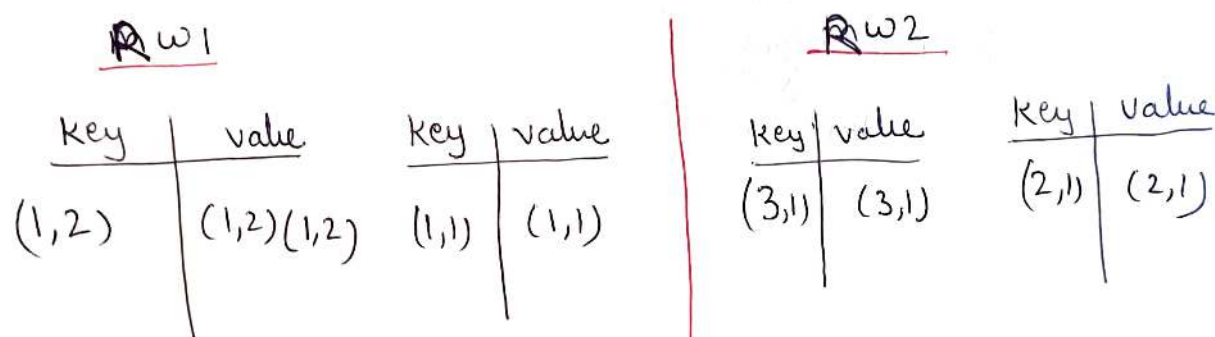 RW1
key value
(1,2) (1,2)(1,2)
key value
(1,1) (1,1)
RW2
key value
(3,1) (3,1)
key value
(2,1) (2,1)